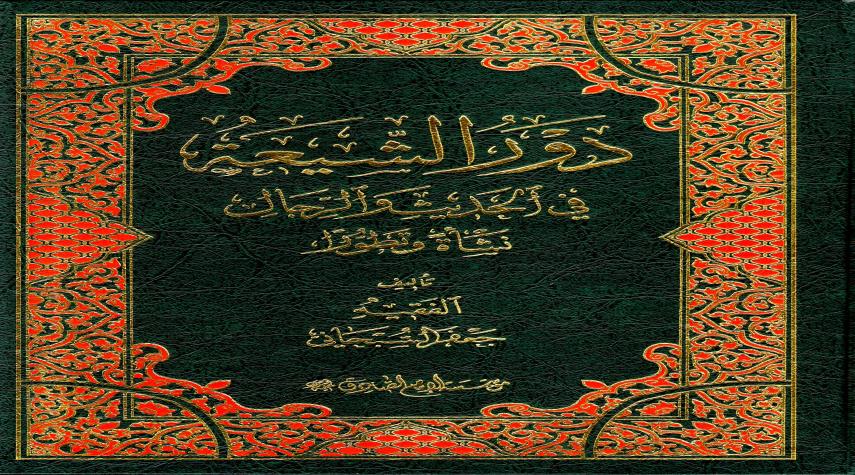 دور الشيعة
في الحديث والرجال
نشأة وتطورا
تأليف
الفقيه
جعفر السبحاني
مؤسسة الإمام الصادق